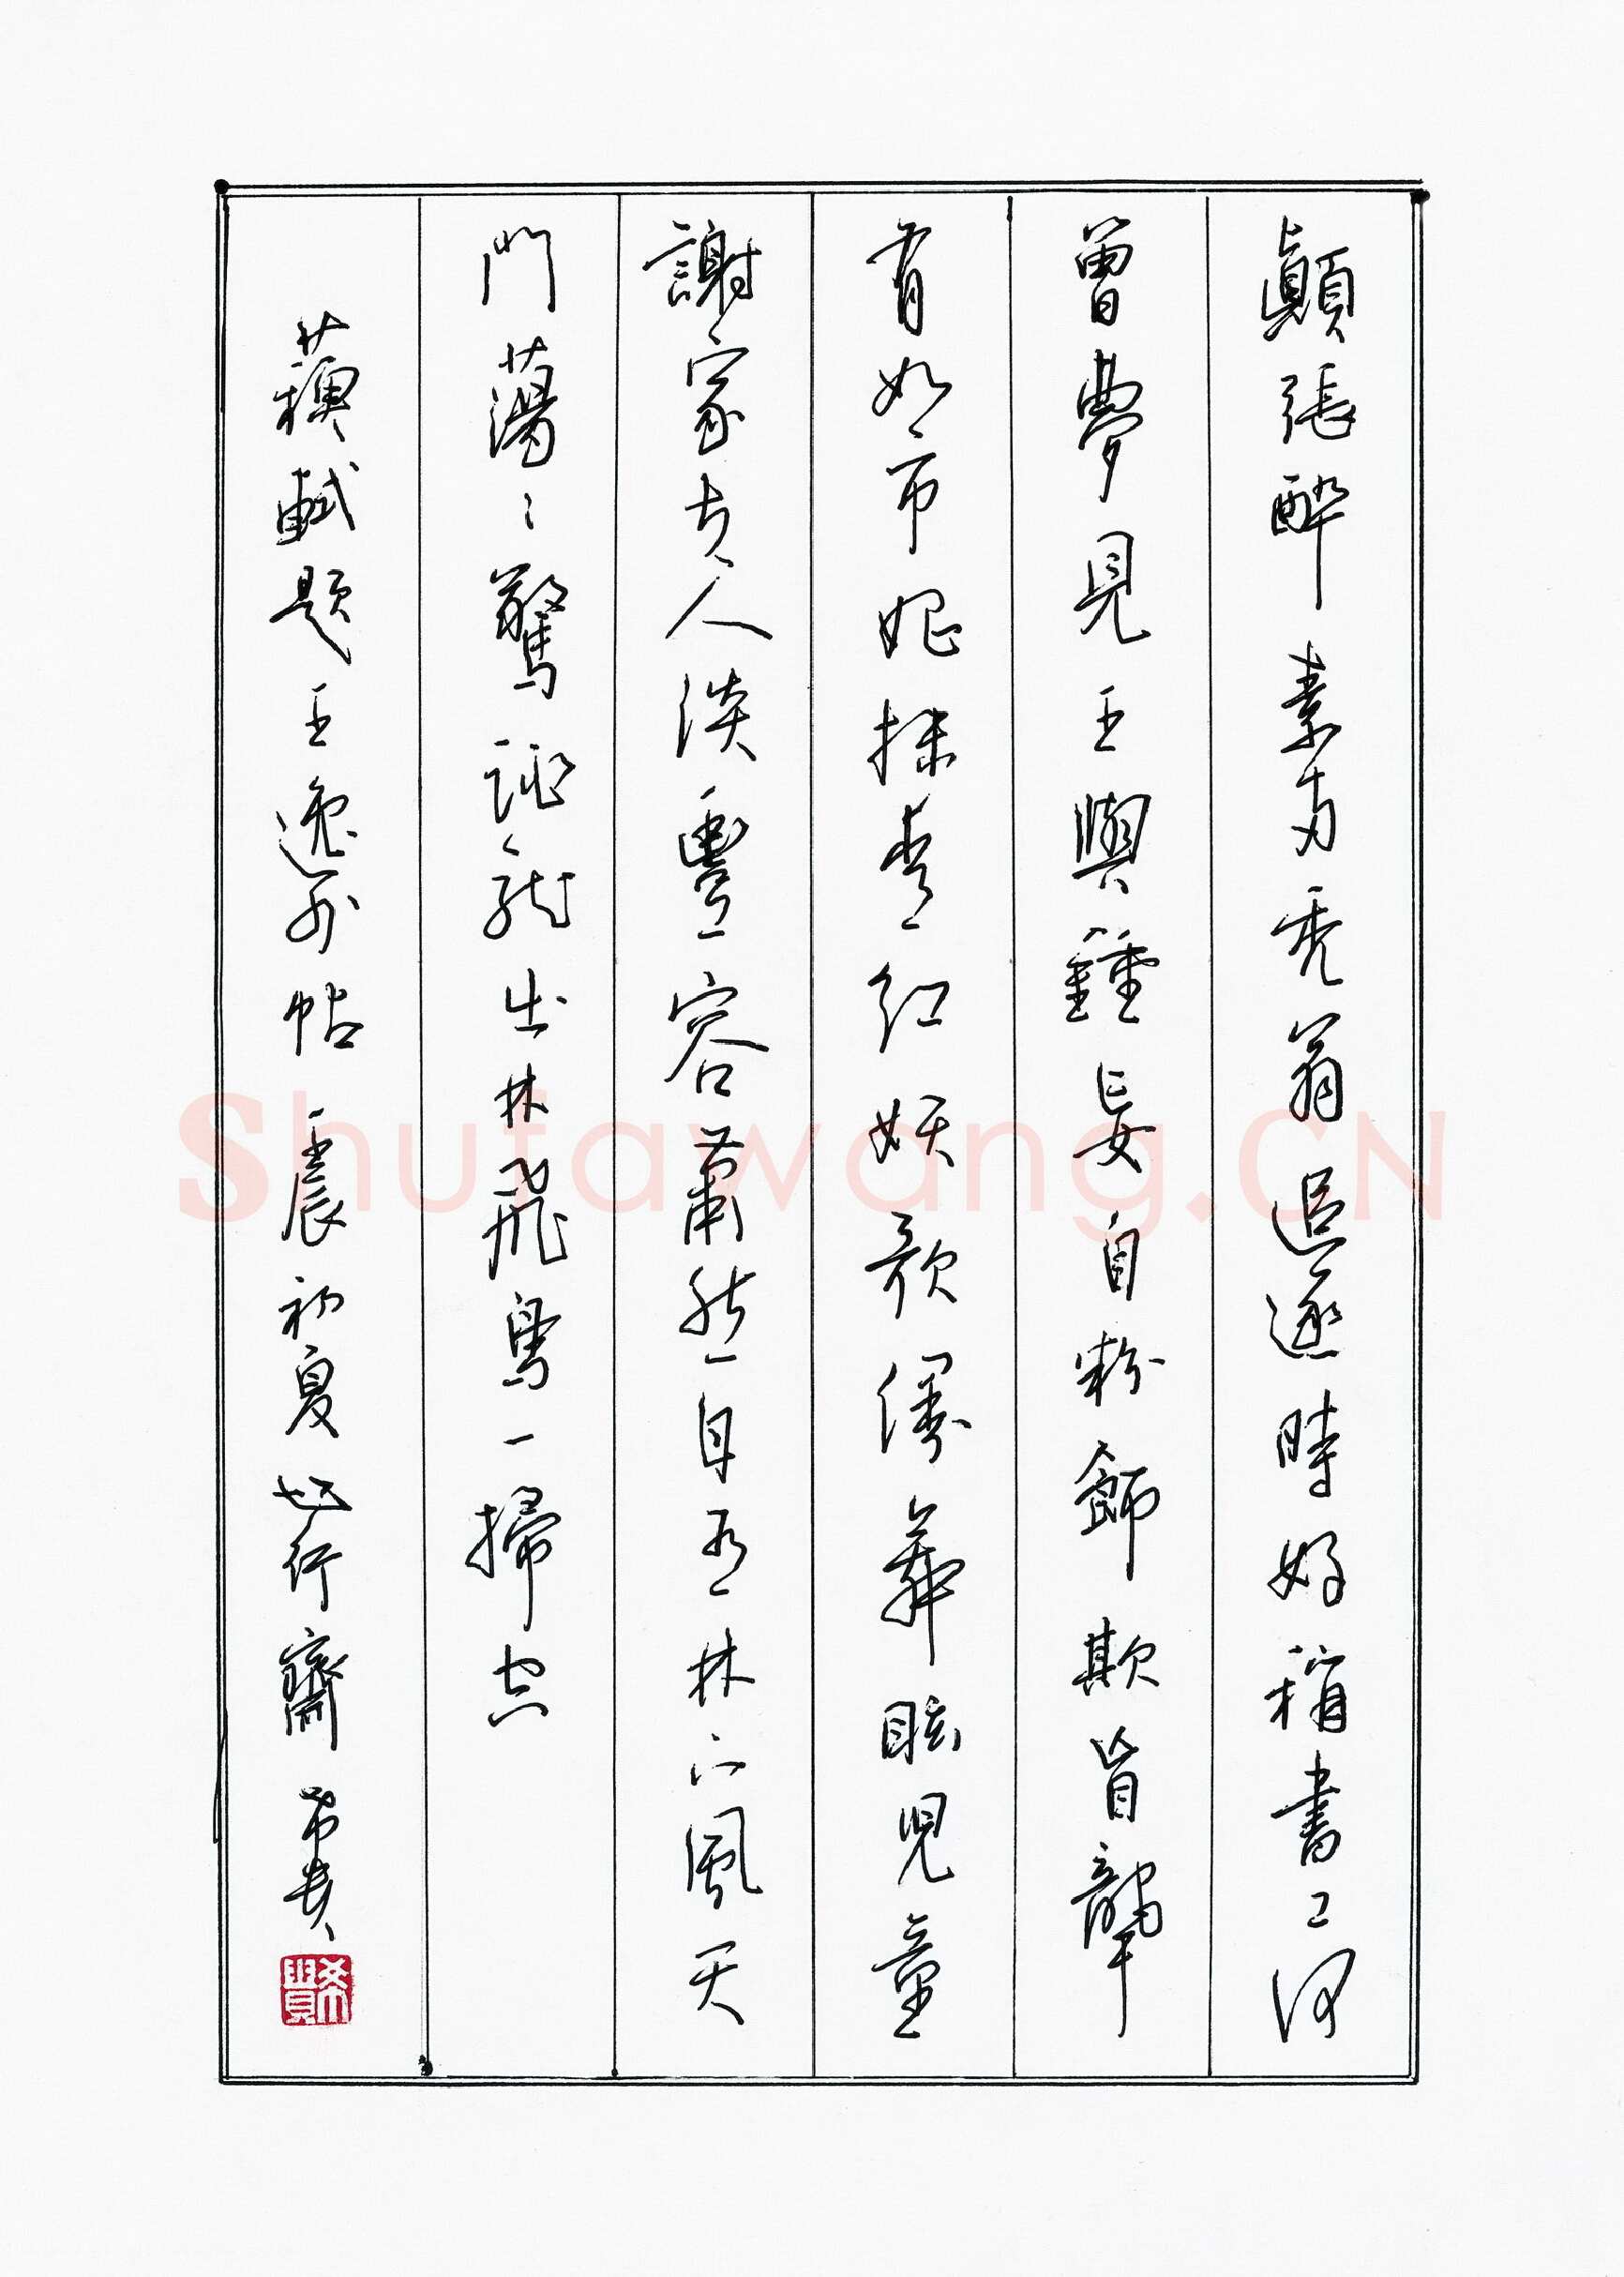 顛張醉素兩禿翁追逐時好稱書工何
曾夢見王與鍾妄自粉飾欺盲聾
有如市娼抹青紅妖歌僈舞眩兒童
謝家夫人淡豐容蕭然自有林下風天
門蕩々驚跳龍出林飛鳥一掃空
蘇軾題王逸少帖 壬辰初夏也行齋 希賢
希賢
Shufawang.CN